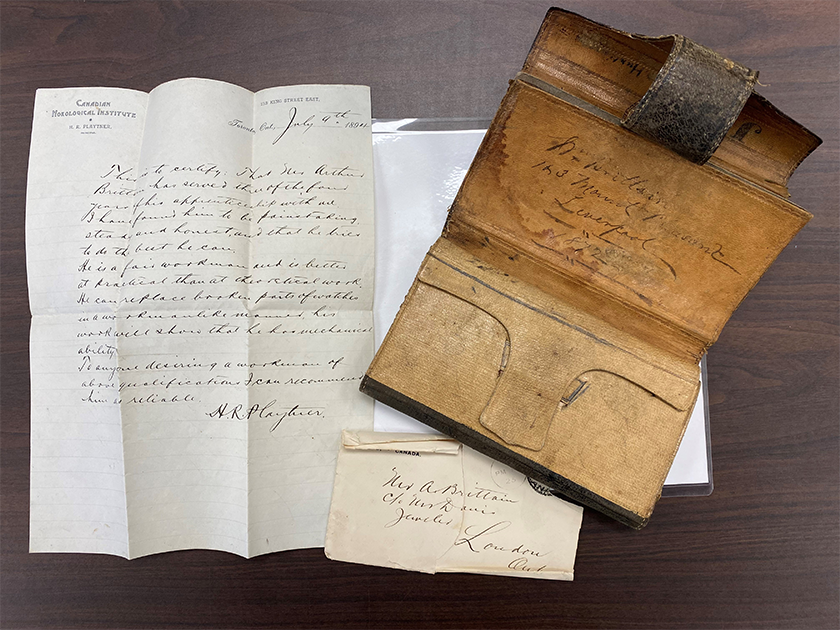 CANADIAN
HOROLOGICAL INSTITUTE
H. R. PLAYTNER,
KING STREET EAST,
Toronto, July 9th 189
This is to certify, That Mr Arthur
Brittain has served three of the four
years of his apprenticeship with me.
I have found him to be painstaking
steady and honest and that he tries
to do the best he can.
He is a fair workman and is better
at practical than at theoretical work.
He can replace broken parts of watches
in a workmanlike manner, his
work will show that he has mechanical
ability
To anyone desiring a workman of
above qualifications I can recommend
him as reliable.
H.R. Playtner,
Wm Brittain
Mount Pleasant
Liverpool
CANADA.
Mr A. Brittain
c/o Mr Davis
Jeweler
London
Ont